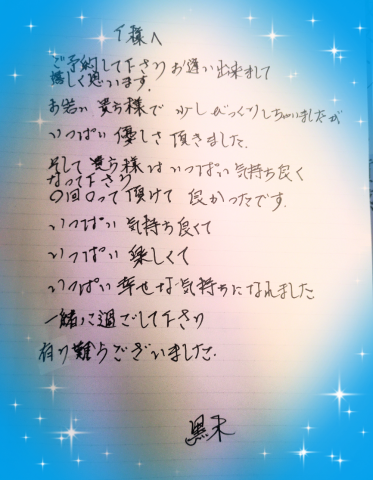 T様へ
ご予約して下さりお逢い出来まして
嬉しく思います。
お若い貴方様で少しびっくりしちゃいましたが
いっぱい優しさ頂きました。
そして貴方様はいっぱい気持ち良く
なって下さり
〇回〇って頂けて良かったです。
いっぱい気持ち良くて
いっぱい楽しくて
いっぱい幸せな気持ちになれました
一緒に過ごして下さり
有り難うございました。
黒木